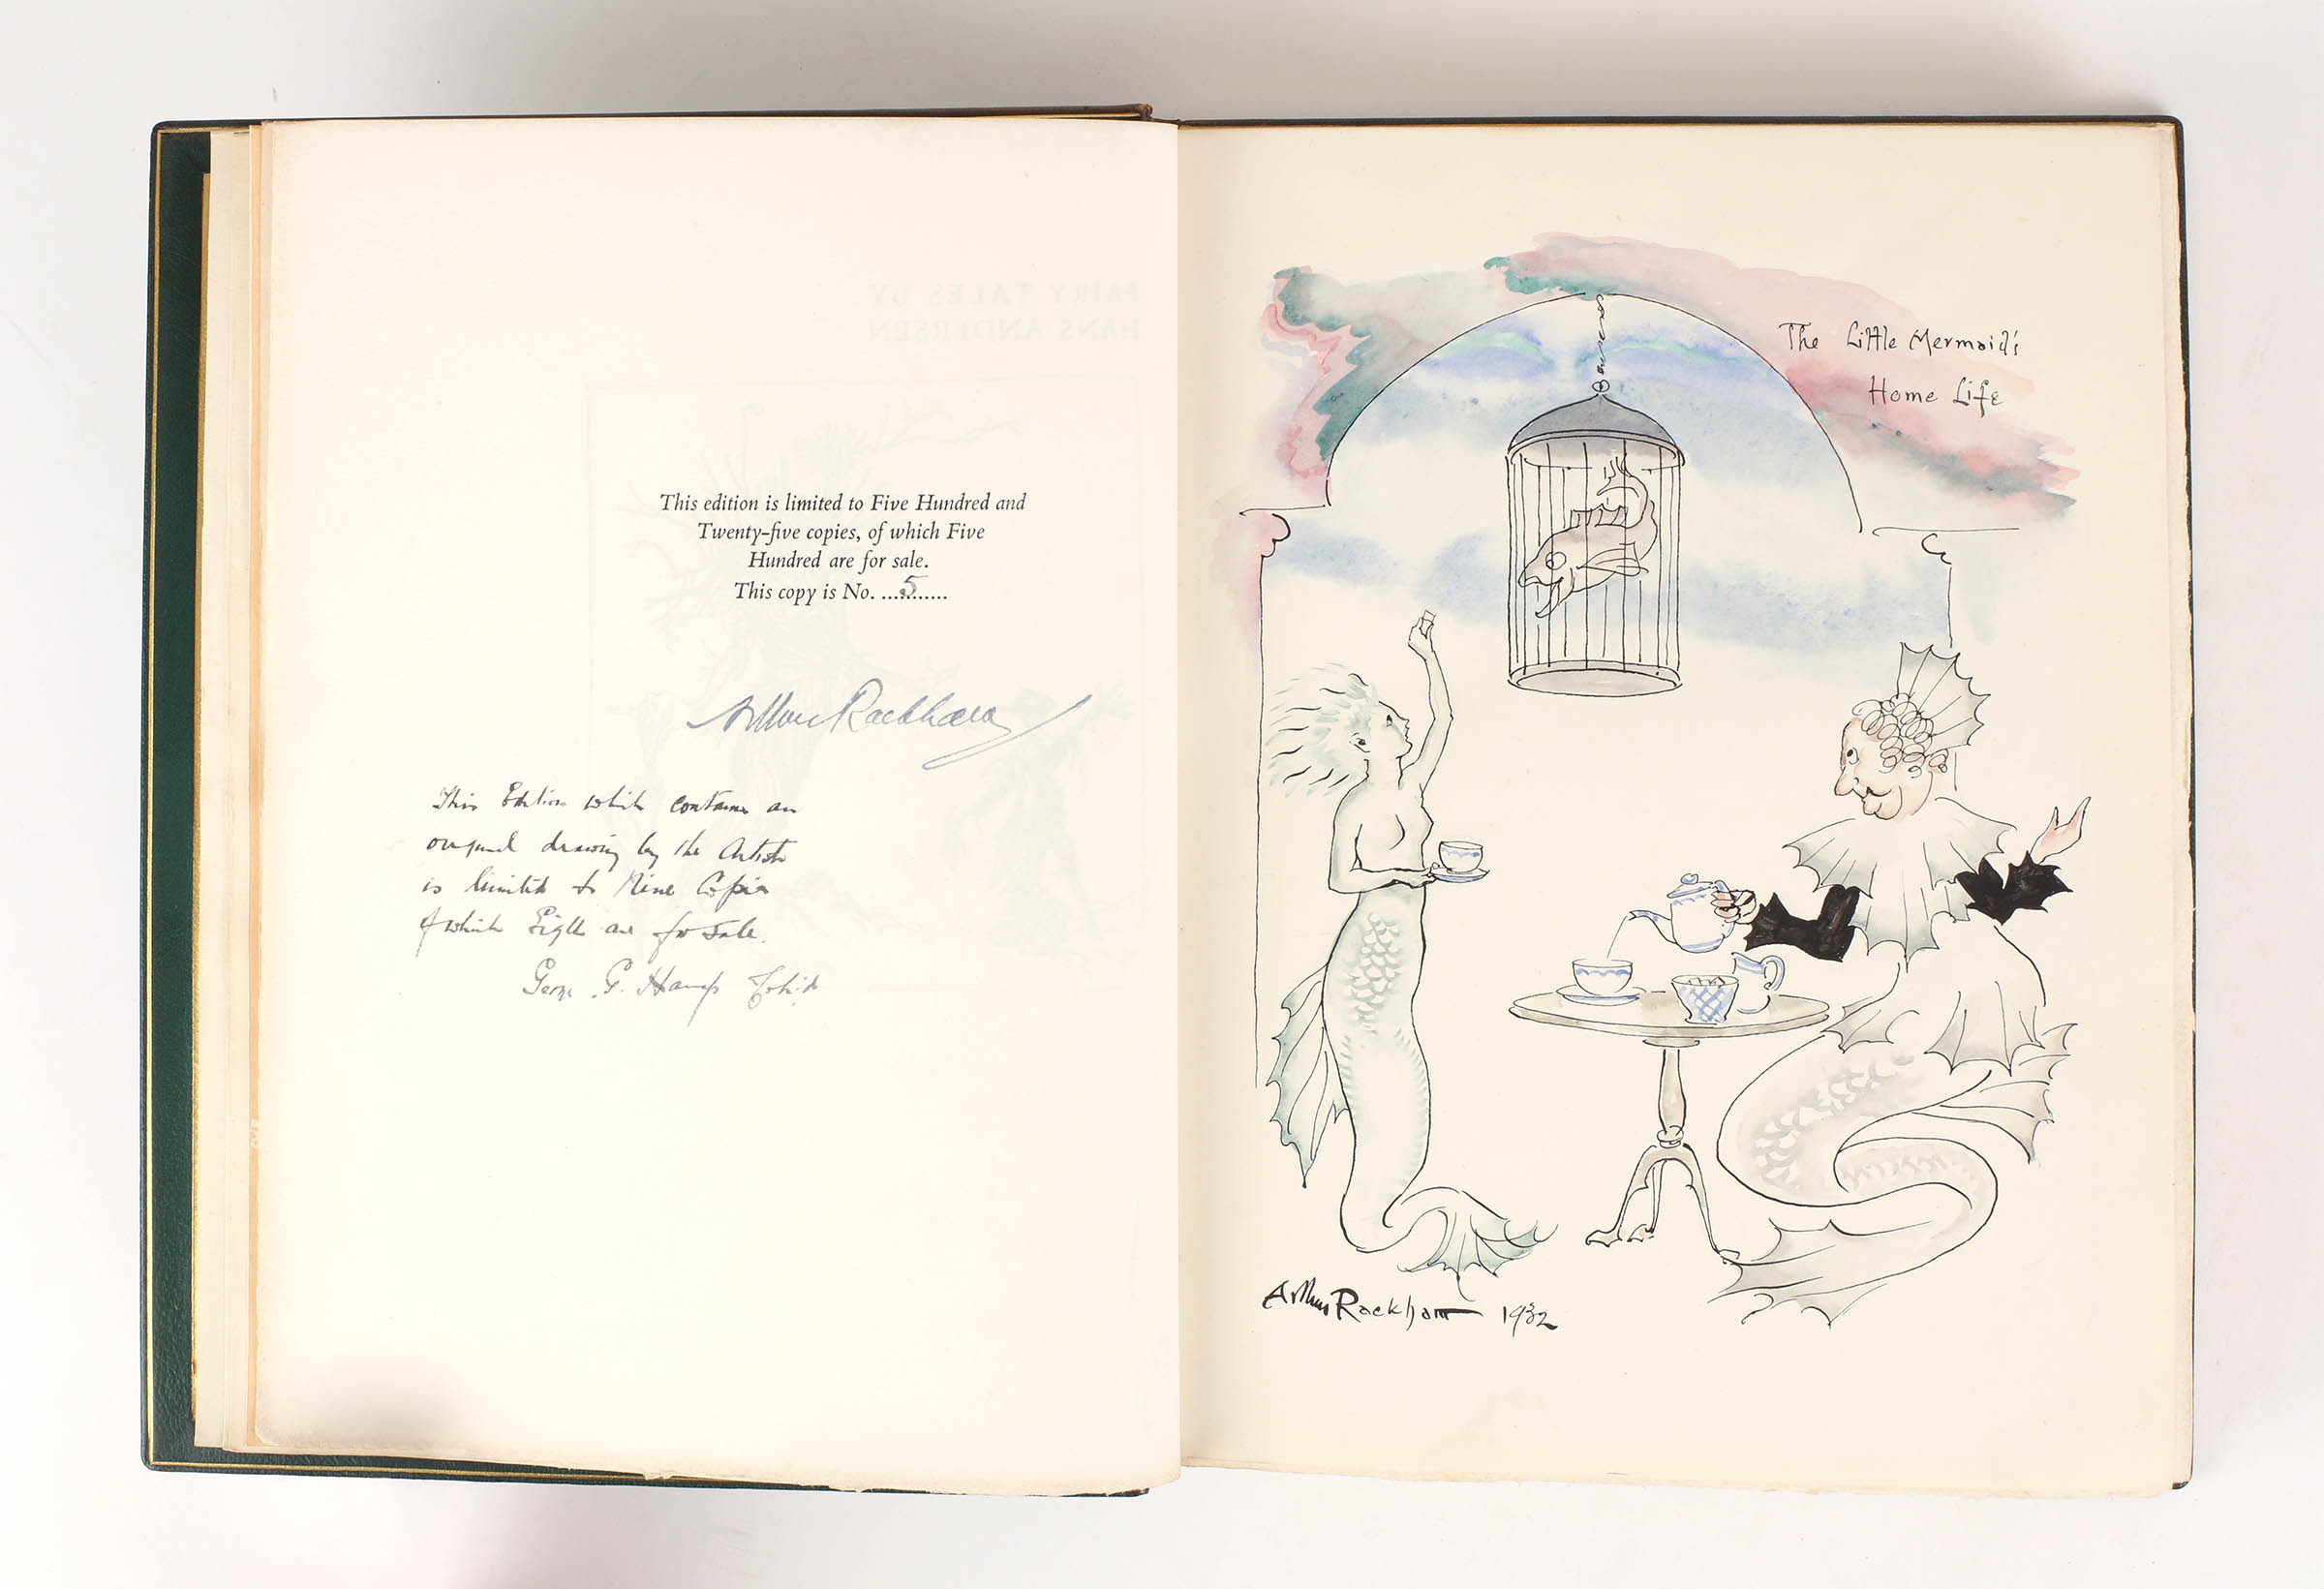 This edition is limited to Five Hundred and
Twenty-five copies, of which Five
Hundred are for sale.
This copy is No. ....5......
Arthur Rackham
This Edition which contains an
original drawing by the Artist
is limited to Nine Copies
of which Eight are for sale.
George G. Harrap
FAIRY TALES BY
HANS ANDERSEN
The Little Mermaid's
Home Life
Arthur Rackham 1932